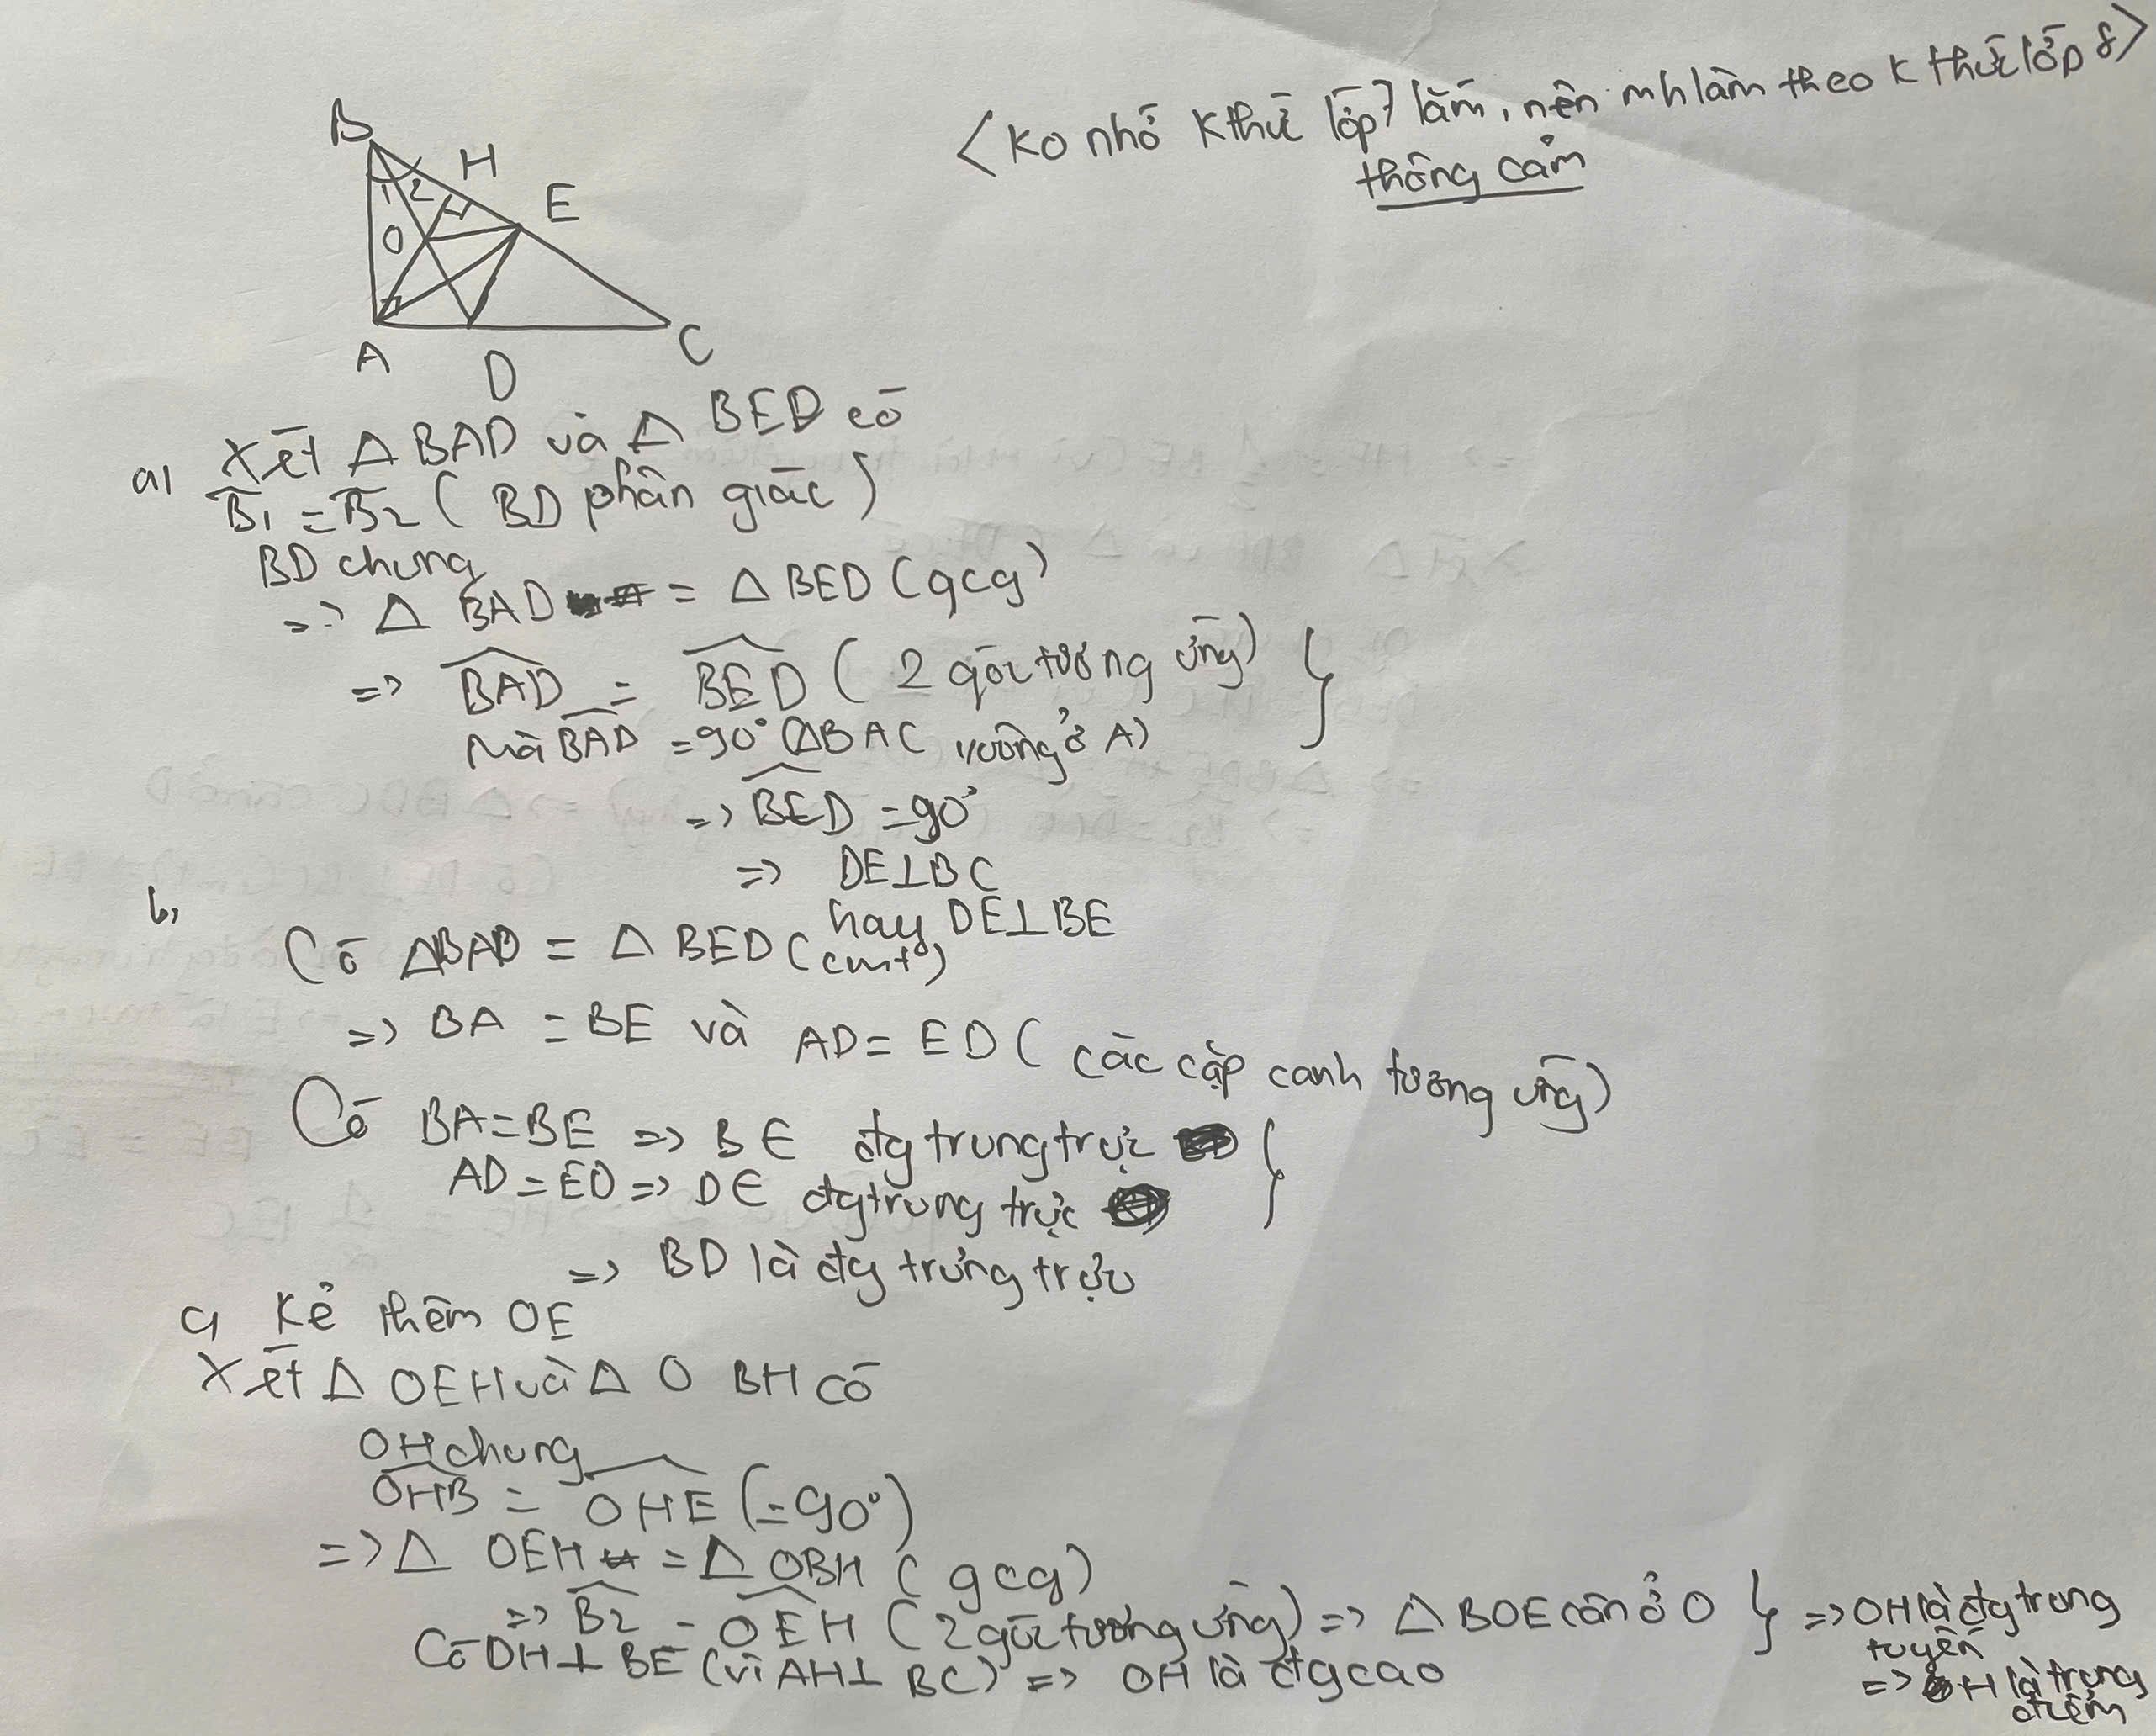 <Ko nhớ kthức lớp 7 lắm, nên mh làm theo k thức lớp 8>
thông cảm
B
H
1 2
E
O
A
D
C
a, Xét Δ BAD và Δ BED có
B1 = B2 ( BD phân giác )
BD chung
=> Δ BAD = Δ BED (gcg)
=> BAD = BED ( 2 góc tương ứng)
Mà BAD = 90° (ΔBAC vuông ở A)
=> BED = 90°
=> DE⊥BC
hay DE⊥BE
b,
Có ΔBAD = Δ BED (cmt)
=> BA = BE và AD = ED ( các cặp cạnh tương ứng)
Có BA = BE => B ∈ đg trung trực
AD = ED => D ∈ đg trung trực
=> BD là đg trung trực
c, Kẻ thêm OE
Xét Δ OEH và Δ OBH có
OH chung
OHB = OHE (=90°)
=> Δ OEH = Δ OBH ( gcg)
=> B2 = OEH ( 2 góc tương ứng) => Δ BOE cân ở O } => OH là đg trung
tuyến
Có OH ⊥ BE (vì AH⊥ BC) => OH là đg cao
=> H là trung
điểm